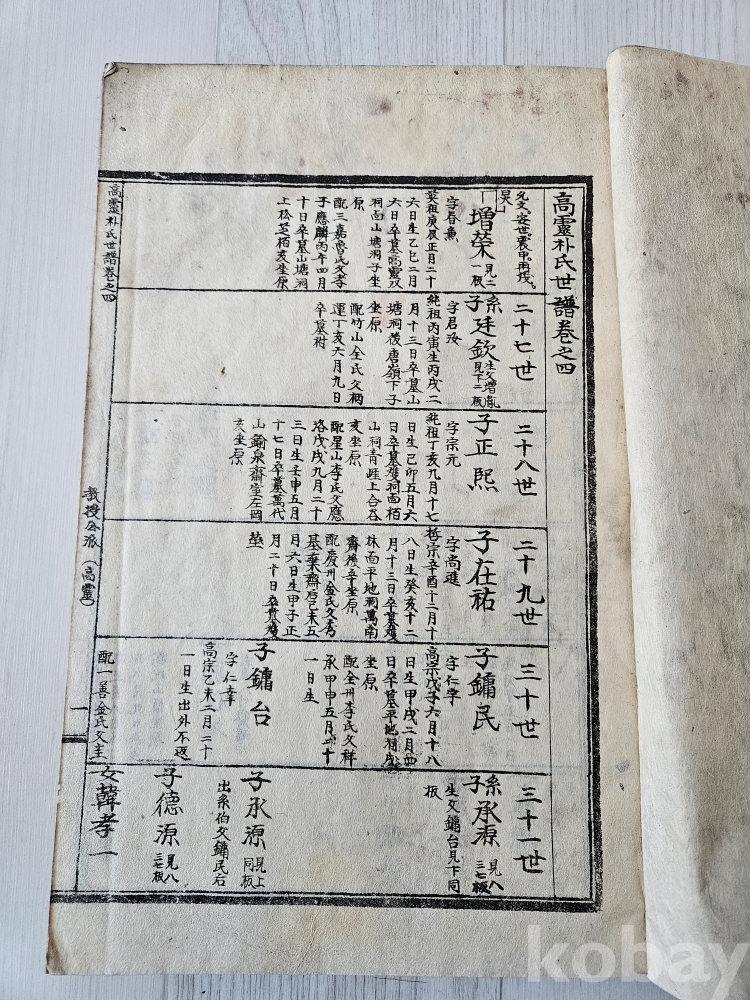 高靈朴氏世譜卷之四
增榮 見二一板
字春魚
英祖庚辰正月二十
六日生乙巳二月
六日卒墓高靈双
祠面山塘洞子坐
原
配三嘉魯氏文孝
子應麟丙午四月
十日卒墓山塘洞
上松芝栢亥坐原
二十七世
系子廷欽 生父增胤見下二板
字君汝
純祖丙寅生丙戌二
月十三日卒墓山
塘洞後唐嶺下子
坐原
配竹山全氏文柄
運丁亥六月九日
卒墓祔
二十八世
子正熙
字宗元
純祖丁亥九月十七
日生己卯五月六
日卒墓雙祠面栢
山祠青崕上合谷
亥坐原
配星山李氏文應
洛戊戌九月二十
三日生壬申五月
十七日卒墓萬代
山鍮泉齋室左岡
亥坐原
二十九世
子在祐
字尚進
哲宗辛酉十二月十
八日生癸亥十二
月十三日卒墓雙
林面平地洞萬南
齊後辛坐原
配慶州金氏文秀
基葉齋后己未五
月六日生甲子正
月二十日卒墓雙
塋
三十世
子鏞民
字仁孝
高宗戊子六月十八
日生甲戌二月四
日卒墓平地洞戌
坐原
配全州李氏文祥
承甲申五月二十
一日生
子鏞台
字仁幸
高宗乙未二月二十
一日生出外不返
三十一世
系子承源 見八三七板
生父鏞台見下同
板
子承源 見上同板
出系伯父鏞民后
子德源 見八三七板
高靈朴氏世譜卷之四
教授公派 (高靈)
一
配一善金氏文圭
女韓孝一
kobay